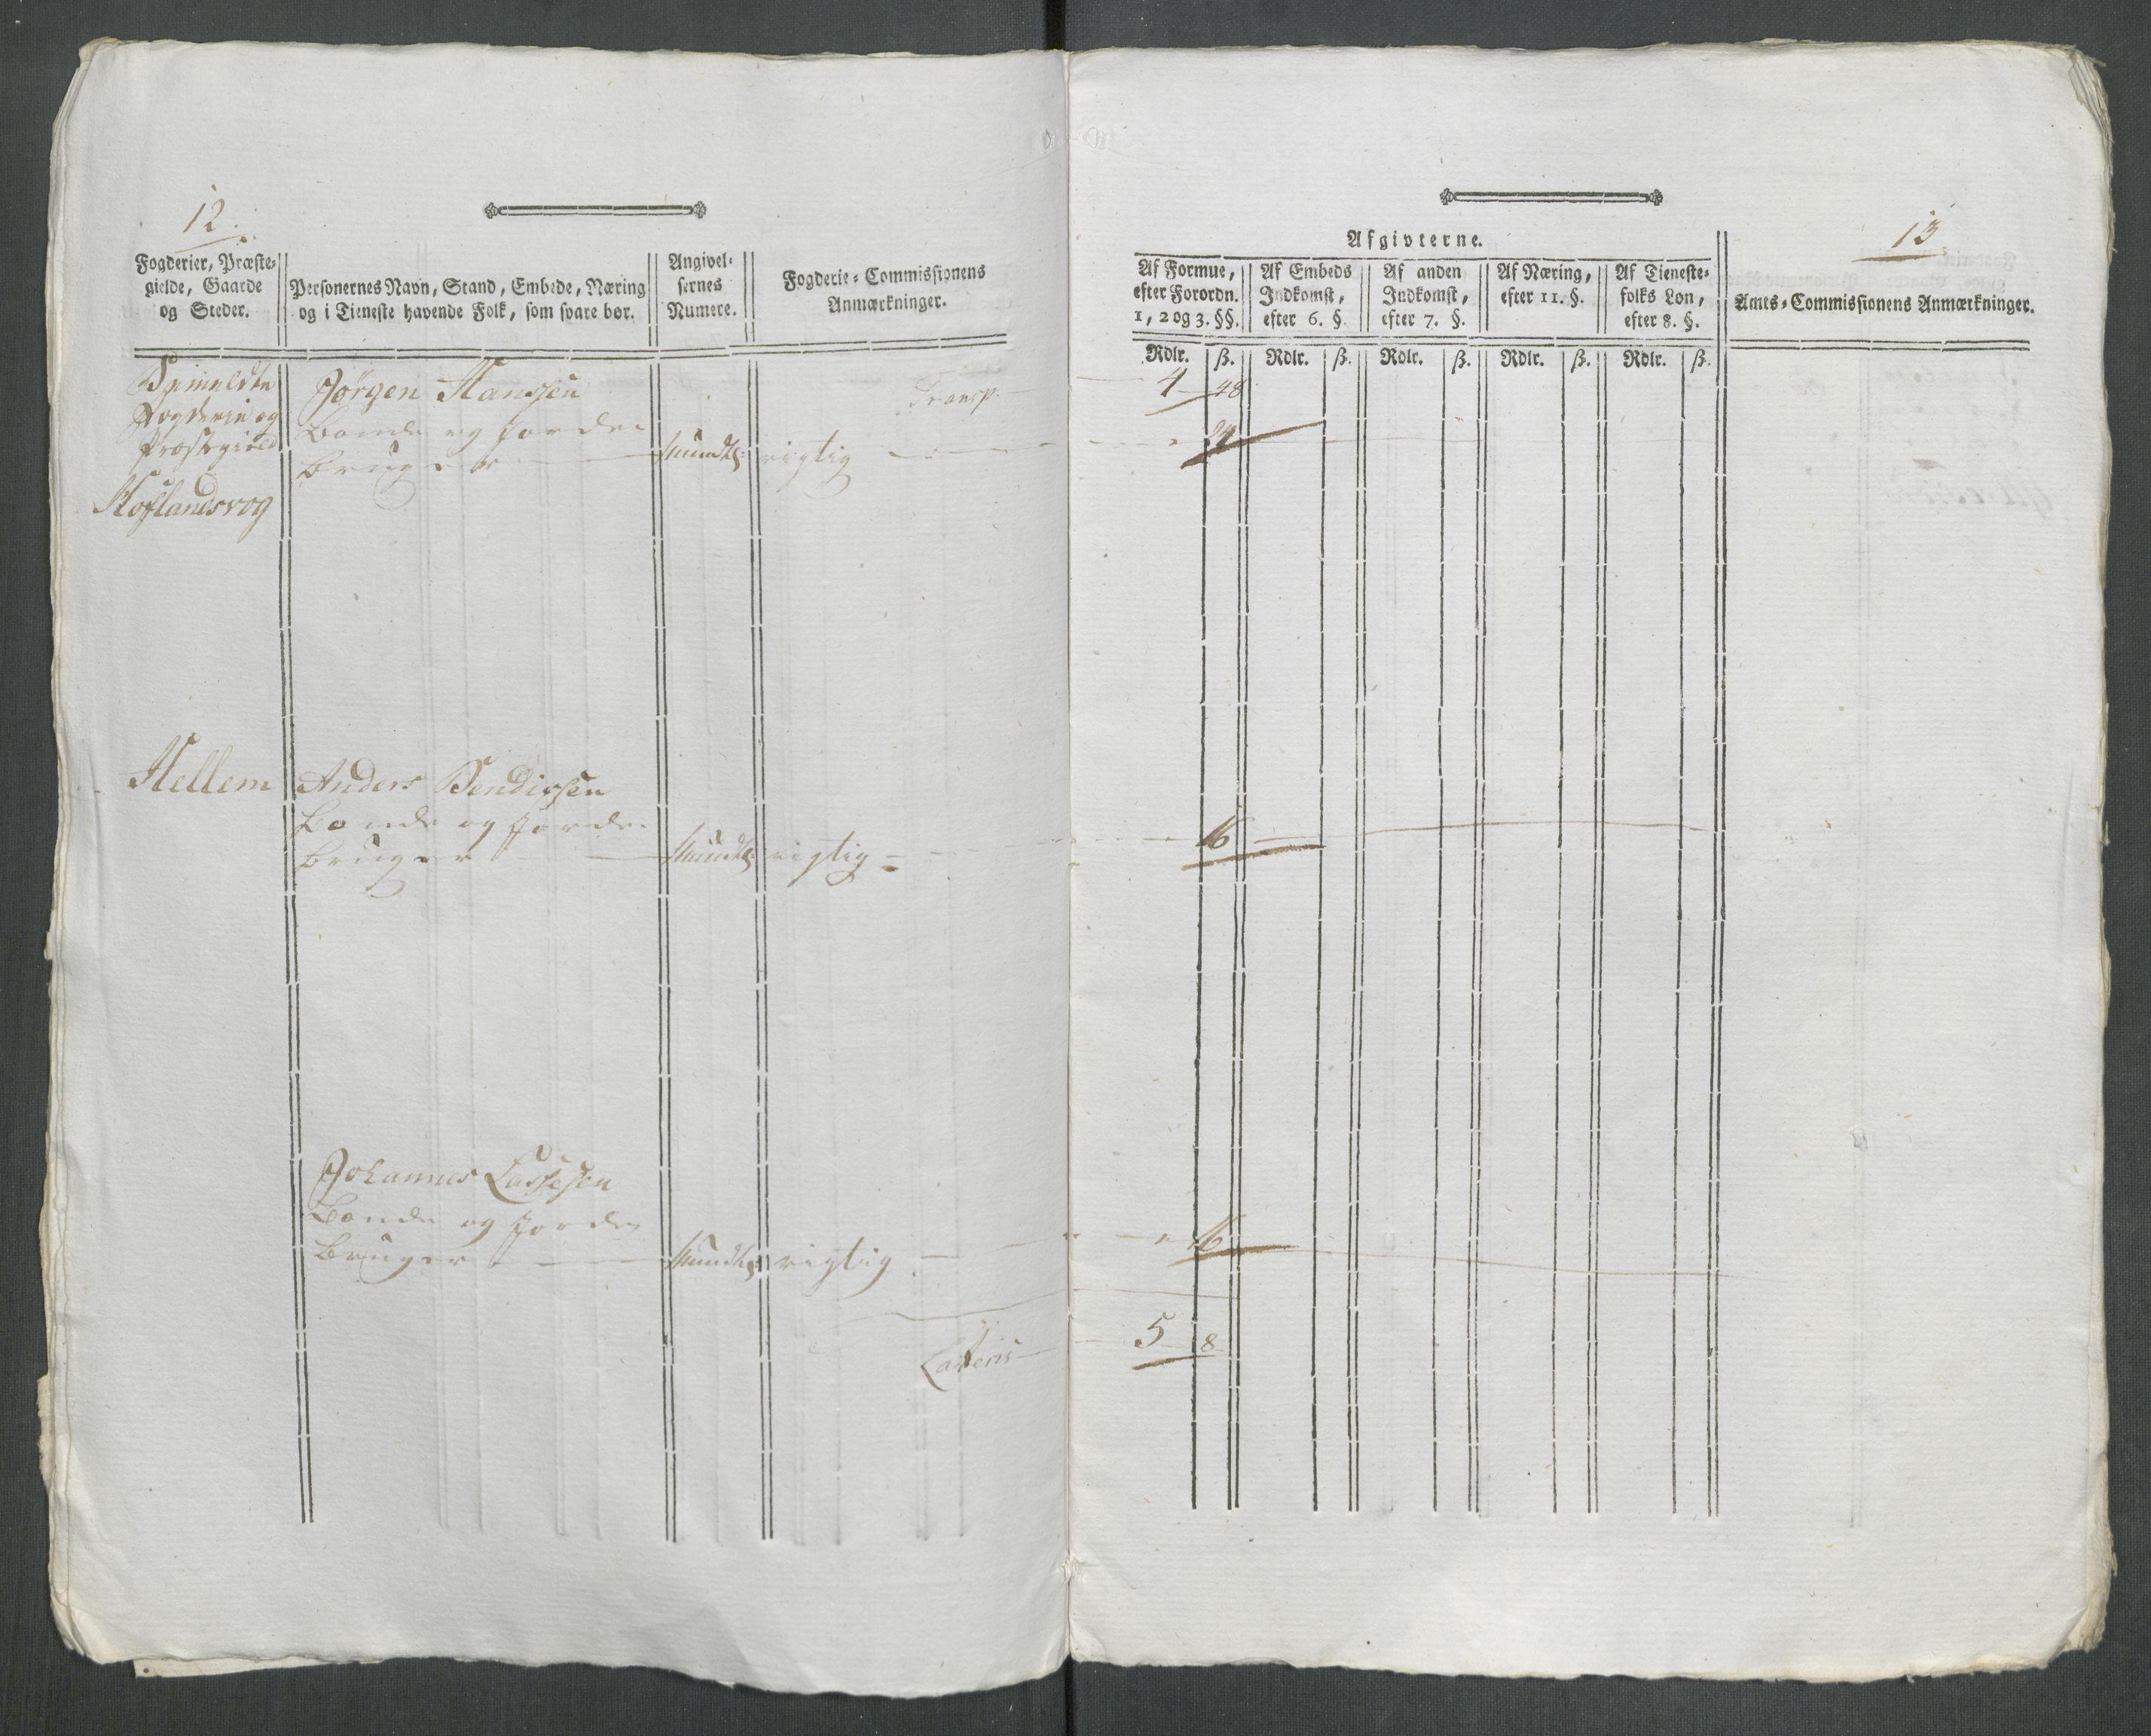 12.
Fogderier, Præste-
gielde, Gaarde
og Steder.
Personernes Navn, Stand, Embede, Næring
og i Tieneste havende Folk, som svare bør.
Angivel-
sernes
Numere.
Fogderie-Commissionens
Anmærkninger.
Bemeldte
Fogderie og
Præstegield
Høflandsvog
Jörgen Hanssen
Bonde og Jorde
bruger
Mundtl: rigtig
Transp.
Hellem
Anders Bendixsen
Bonde og Jorde
bruger
Mundtl: rigtig
Johannes Lassesen
Bonde og Jorde
bruger
Mundtl: rigtig
Lateris
13
Afgivterne.
Af Formue,
efter Forordn.
1, 2 og 3. §§.
Af Embeds
Indkomst,
efter 6. §.
Af anden
Indkomst,
efter 7. §.
Af Næring,
efter 11. §.
Af Tieneste-
folks Løn,
efter 8. §.
Amts-Commissionens Anmærkninger.
Rdlr. ß. Rdlr. ß. Rdlr. ß. Rdlr. ß. Rdlr. ß.
4 48
24
16
16
5 8